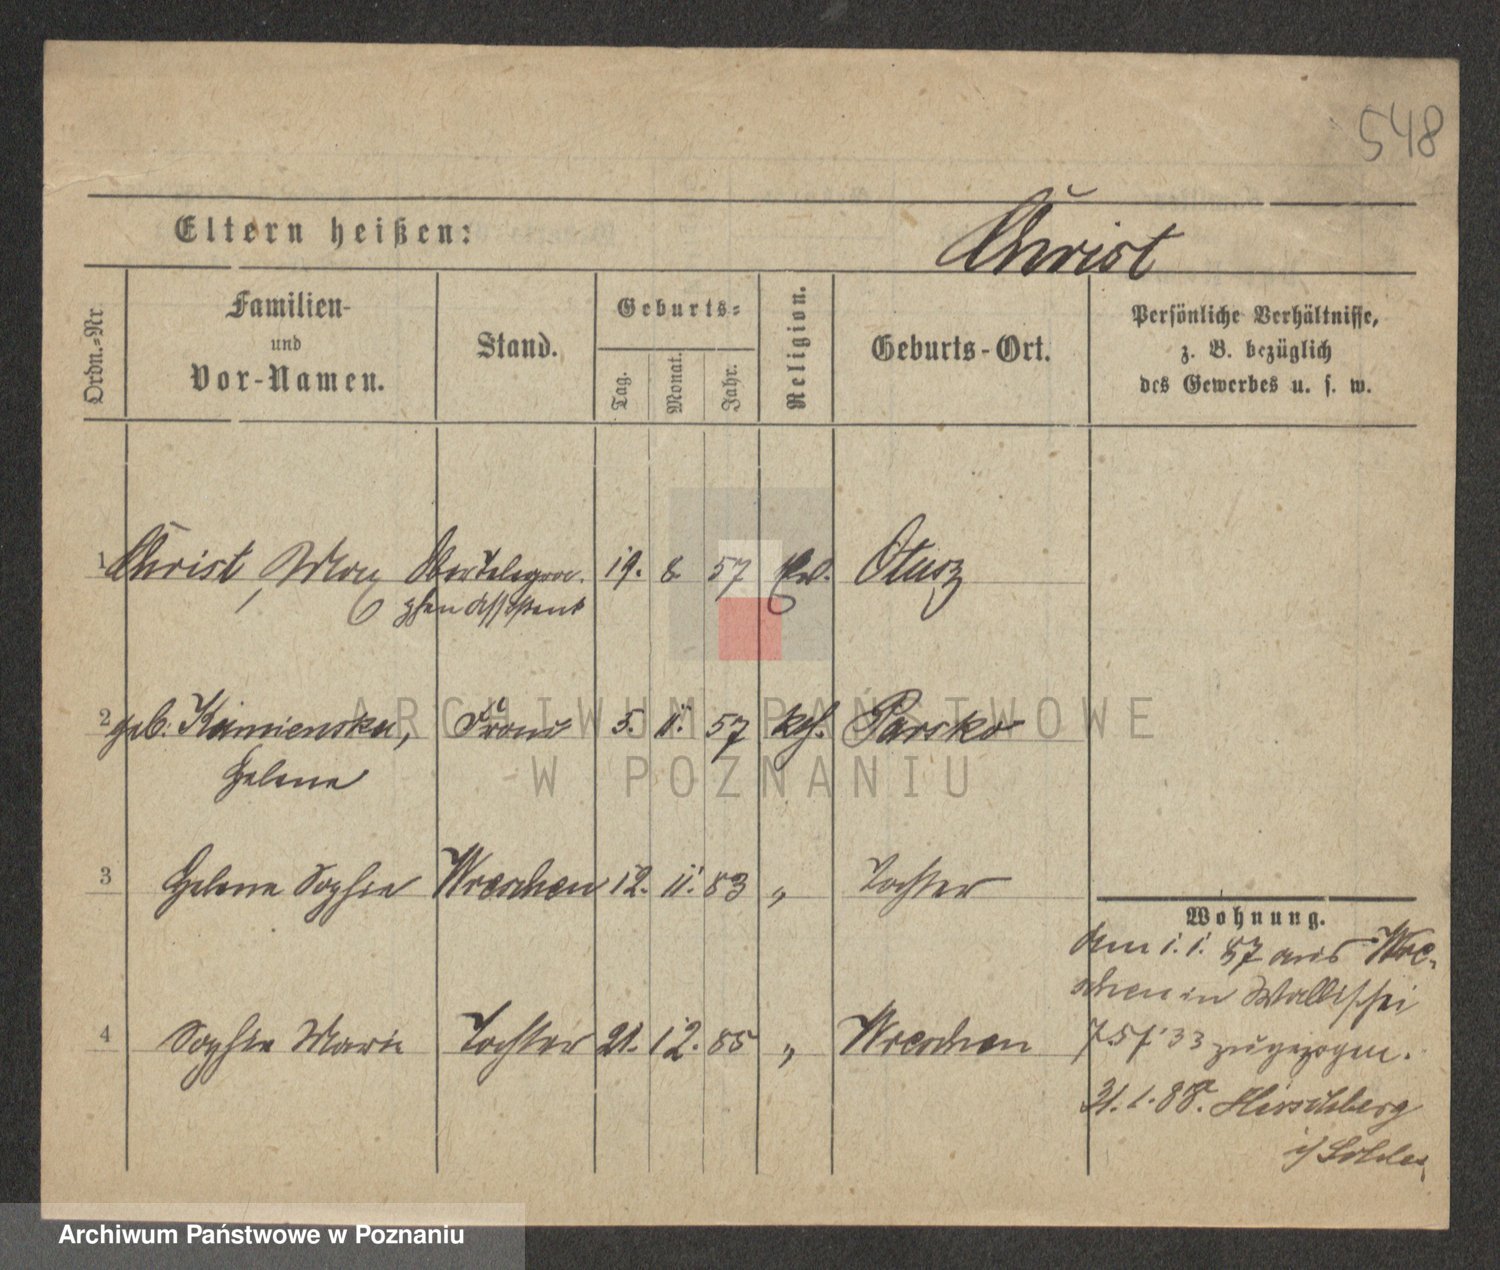 548
Eltern heißen:
Christ
Ordn.-Nr
Familien-
und
Vor-Namen.
Stand.
Geburts-
Tag.
Monat.
Jahr.
Religion.
Geburts-Ort.
Persönliche Verhältnisse,
z. B. bezüglich
des Gewerbes u. s. w.
1 Christ, Max Obertelegra- 19. 8 57 Ev. Otusz
phen Assistent
2 geb. Kamienska, Frau 5. 11. 57 kth. Parsko
Helene
3 Helene Sophie Wreschen 12. 11. 83 " Tochter
4 Sophie Marie Tochter 21. 12. 85 " Wreschen
Wohnung.
am 1. 1. 87 aus Wre-
schen in Wallischei
33 zugezogen.
31. 1. 88. Hirschberg
ARCHIWUM PAŃSTWOWE
W POZNANIU
Archiwum Państwowe w Poznaniu